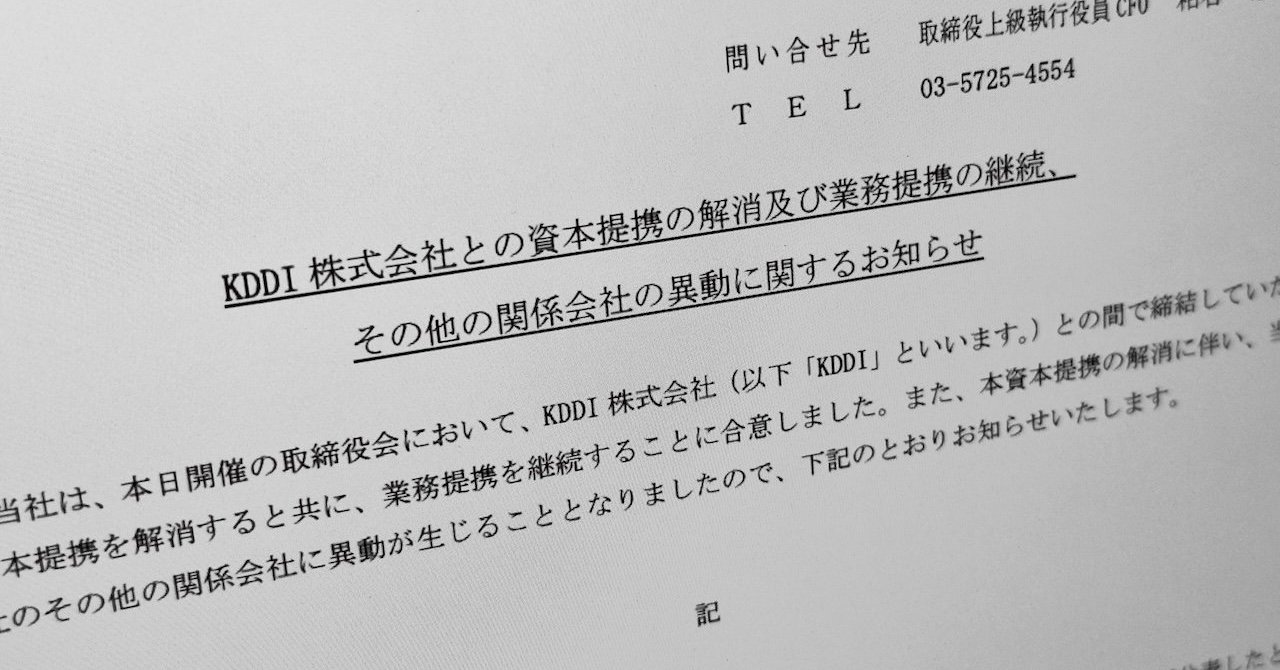 問い合せ先 取締役上級執行役員 CFO
TEL 03-5725-4554
KDDI 株式会社との資本提携の解消及び業務提携の継続、
その他の関係会社の異動に関するお知らせ
当社は、本日開催の取締役会において、KDDI 株式会社（以下「KDDI」といいます。）との間で締結していた
本提携を解消すると共に、業務提携を継続することに合意しました。また、本資本提携の解消に伴い、当
のその他の関係会社に異動が生じることとなりましたので、下記のとおりお知らせいたします。
記